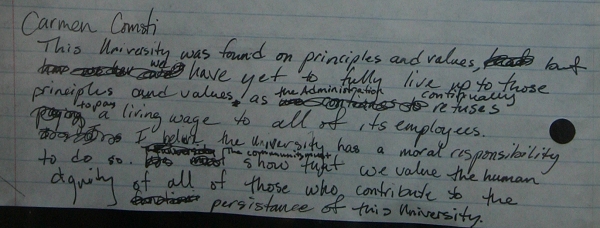 Carmen Comsti
This University was found on principles and values, but
we have yet to fully live up to those
principles and values as the Administration continually refuses
to pay a living wage to all of its employees.
I believe the University has a moral responsibility
to do so. The community must show that we value the human
dignity of all of those who contribute to the
persistance of this University.